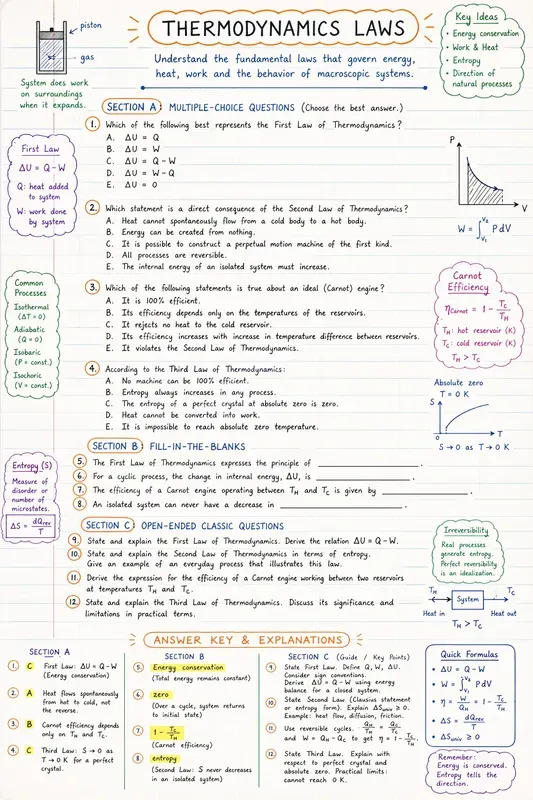 THERMODYNAMICS LAWS
Understand the fundamental laws that govern energy,
heat, work and the behavior of macroscopic systems.
piston
gas
System does work
on surroundings
when it expands.
Key Ideas
• Energy conservation
• Work & Heat
• Entropy
• Direction of
natural processes
SECTION A: MULTIPLE-CHOICE QUESTIONS (Choose the best answer.)
1. Which of the following best represents the First Law of Thermodynamics?
A. ΔU = Q
B. ΔU = W
C. ΔU = Q - W
D. ΔU = W - Q
E. ΔU = 0
First Law
ΔU = Q - W
Q: heat added
to system
W: work done
by system
P
V
W = ∫_{V₁}^{V₂} P dV
2. Which statement is a direct consequence of the Second Law of Thermodynamics?
A. Heat cannot spontaneously flow from a cold body to a hot body.
B. Energy can be created from nothing.
C. It is possible to construct a perpetual motion machine of the first kind.
D. All processes are reversible.
E. The internal energy of an isolated system must increase.
Common
Processes
Isothermal
(ΔT = 0)
Adiabatic
(Q = 0)
Isobaric
(P = const.)
Isochoric
(V = const.)
3. Which of the following statements is true about an ideal (Carnot) engine?
A. It is 100% efficient.
B. Its efficiency depends only on the temperatures of the reservoirs.
C. It rejects no heat to the cold reservoir.
D. Its efficiency increases with increase in temperature difference between reservoirs.
E. It violates the Second Law of Thermodynamics.
Carnot
Efficiency
η_Carnot = 1 - T_C/T_H
T_H: hot reservoir (K)
T_C: cold reservoir (K)
T_H > T_C
4. According to the Third Law of Thermodynamics:
A. No machine can be 100% efficient.
B. Entropy always increases in any process.
C. The entropy of a perfect crystal at absolute zero is zero.
D. Heat cannot be converted into work.
E. It is impossible to reach absolute zero temperature.
Absolute zero
T = 0 K
S
0
T
S → 0 as T → 0 K
SECTION B: FILL-IN-THE-BLANKS
5. The First Law of Thermodynamics expresses the principle of ____________.
6. For a cyclic process, the change in internal energy, ΔU, is ____________.
7. The efficiency of a Carnot engine operating between T_H and T_C is given by ____________.
8. An isolated system can never have a decrease in ____________.
Entropy (S)
Measure of
disorder or
number of
microstates.
ΔS = dQ_rev/T
SECTION C: OPEN-ENDED CLASSIC QUESTIONS
9. State and explain the First Law of Thermodynamics. Derive the relation ΔU = Q - W.
10. State and explain the Second Law of Thermodynamics in terms of entropy.
Give an example of an everyday process that illustrates this law.
11. Derive the expression for the efficiency of a Carnot engine working between two reservoirs
at temperatures T_H and T_C.
12. State and explain the Third Law of Thermodynamics. Discuss its significance and
limitations in practical terms.
Irreversibility
Real processes
generate entropy.
Perfect reversibility
is an idealization.
T_H
System
T_C
Heat in
Heat out
T_H > T_C
ANSWER KEY & EXPLANATIONS
SECTION A
1. C First Law: ΔU = Q - W
(Energy conservation)
2. A Heat flows spontaneously
from hot to cold, not
the reverse.
3. B Carnot efficiency depends
only on T_H and T_C.
4. C Third Law: S → 0 as
T → 0 K for a perfect
crystal.
SECTION B
5. Energy conservation
(Total energy remains constant)
6. zero
(Over a cycle, system returns
to initial state)
7. 1 - T_C/T_H
(Carnot efficiency)
8. entropy
(Second Law: S never decreases
in an isolated system)
SECTION C (Guide / Key Points)
9. State First Law. Define Q, W, ΔU.
Consider sign conventions.
Derive ΔU = Q - W using energy
balance for a closed system.
10. State Second Law (Clausius statement
or entropy form). Explain ΔS_univ ≥ 0.
Example: heat flow, diffusion, friction.
11. Use reversible cycles. Q_H/T_H = Q_C/T_C
and W = Q_H - Q_C to get η = 1 - T_C/T_H.
12. State Third Law. Explain with
respect to perfect crystal and
absolute zero. Practical limits:
cannot reach 0 K.
Quick Formulas
• ΔU = Q - W
• W = ∫_{V₁}^{V₂} P dV
• η = W/Q_H = 1 - T_C/T_H
• ΔS = dQ_rev/T
• ΔS_univ ≥ 0
Remember:
Energy is conserved.
Entropy tells the
direction.